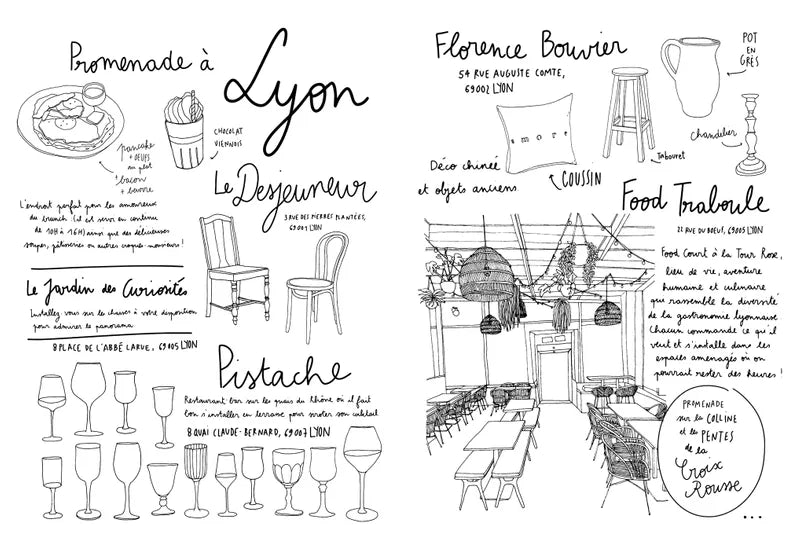 Promenade à
Lyon
pancake
+ OEUFS
au plat
+ bacon
+ beurre
CHOCOLAT
VIENNOIS
Le Desjeuneur
3 RUE DES PIERRES PLANTÉES,
69001 LYON
L'endroit parfait pour les amoureux
du brunch (il est servi en continu
de 10H à 16H) ainsi que des délicieuses
soupes, pâtisseries ou autres croques-monsieurs !
Le Jardin des Curiosités
Installez vous sur les chaises à votre disposition
pour admirer le panorama
8 PLACE DE L'ABBÉ LARUE, 69005 LYON
Pistache
Restaurant bar sur les quais du Rhône où il fait
bon s'installer en terrasse pour siroter son cocktail
8 QUAI CLAUDE-BERNARD, 69007 LYON
Florence Bouvier
54 RUE AUGUSTE COMTE,
69002 LYON
POT
EN
GRÈS
amore
Chandelier
Tabouret
Déco chinée
et objets anciens
COUSSIN
Food Traboule
22 RUE DU BOEUF, 69005 LYON
Food Court à la Tour Rose,
lieu de vie, aventure
humaine et culinaire
qui rassemble la diversité
de la gastronomie lyonnaise
Chacun commande ce qu'il
veut et s'installe dans les
espaces aménagés où on
pourrait rester des heures !
PROMENADE
sur la COLLINE
et les PENTES
de la
Croix
Rousse
...